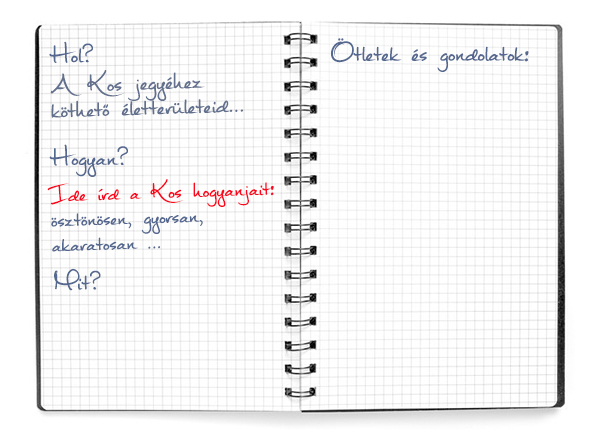 Hol?
A Kos jegyéhez
köthető életterületeid...
Hogyan?
Ide írd a Kos hogyanjait:
ösztönösen, gyorsan,
akaratosan ...
Mit?
Ötletek és gondolatok: